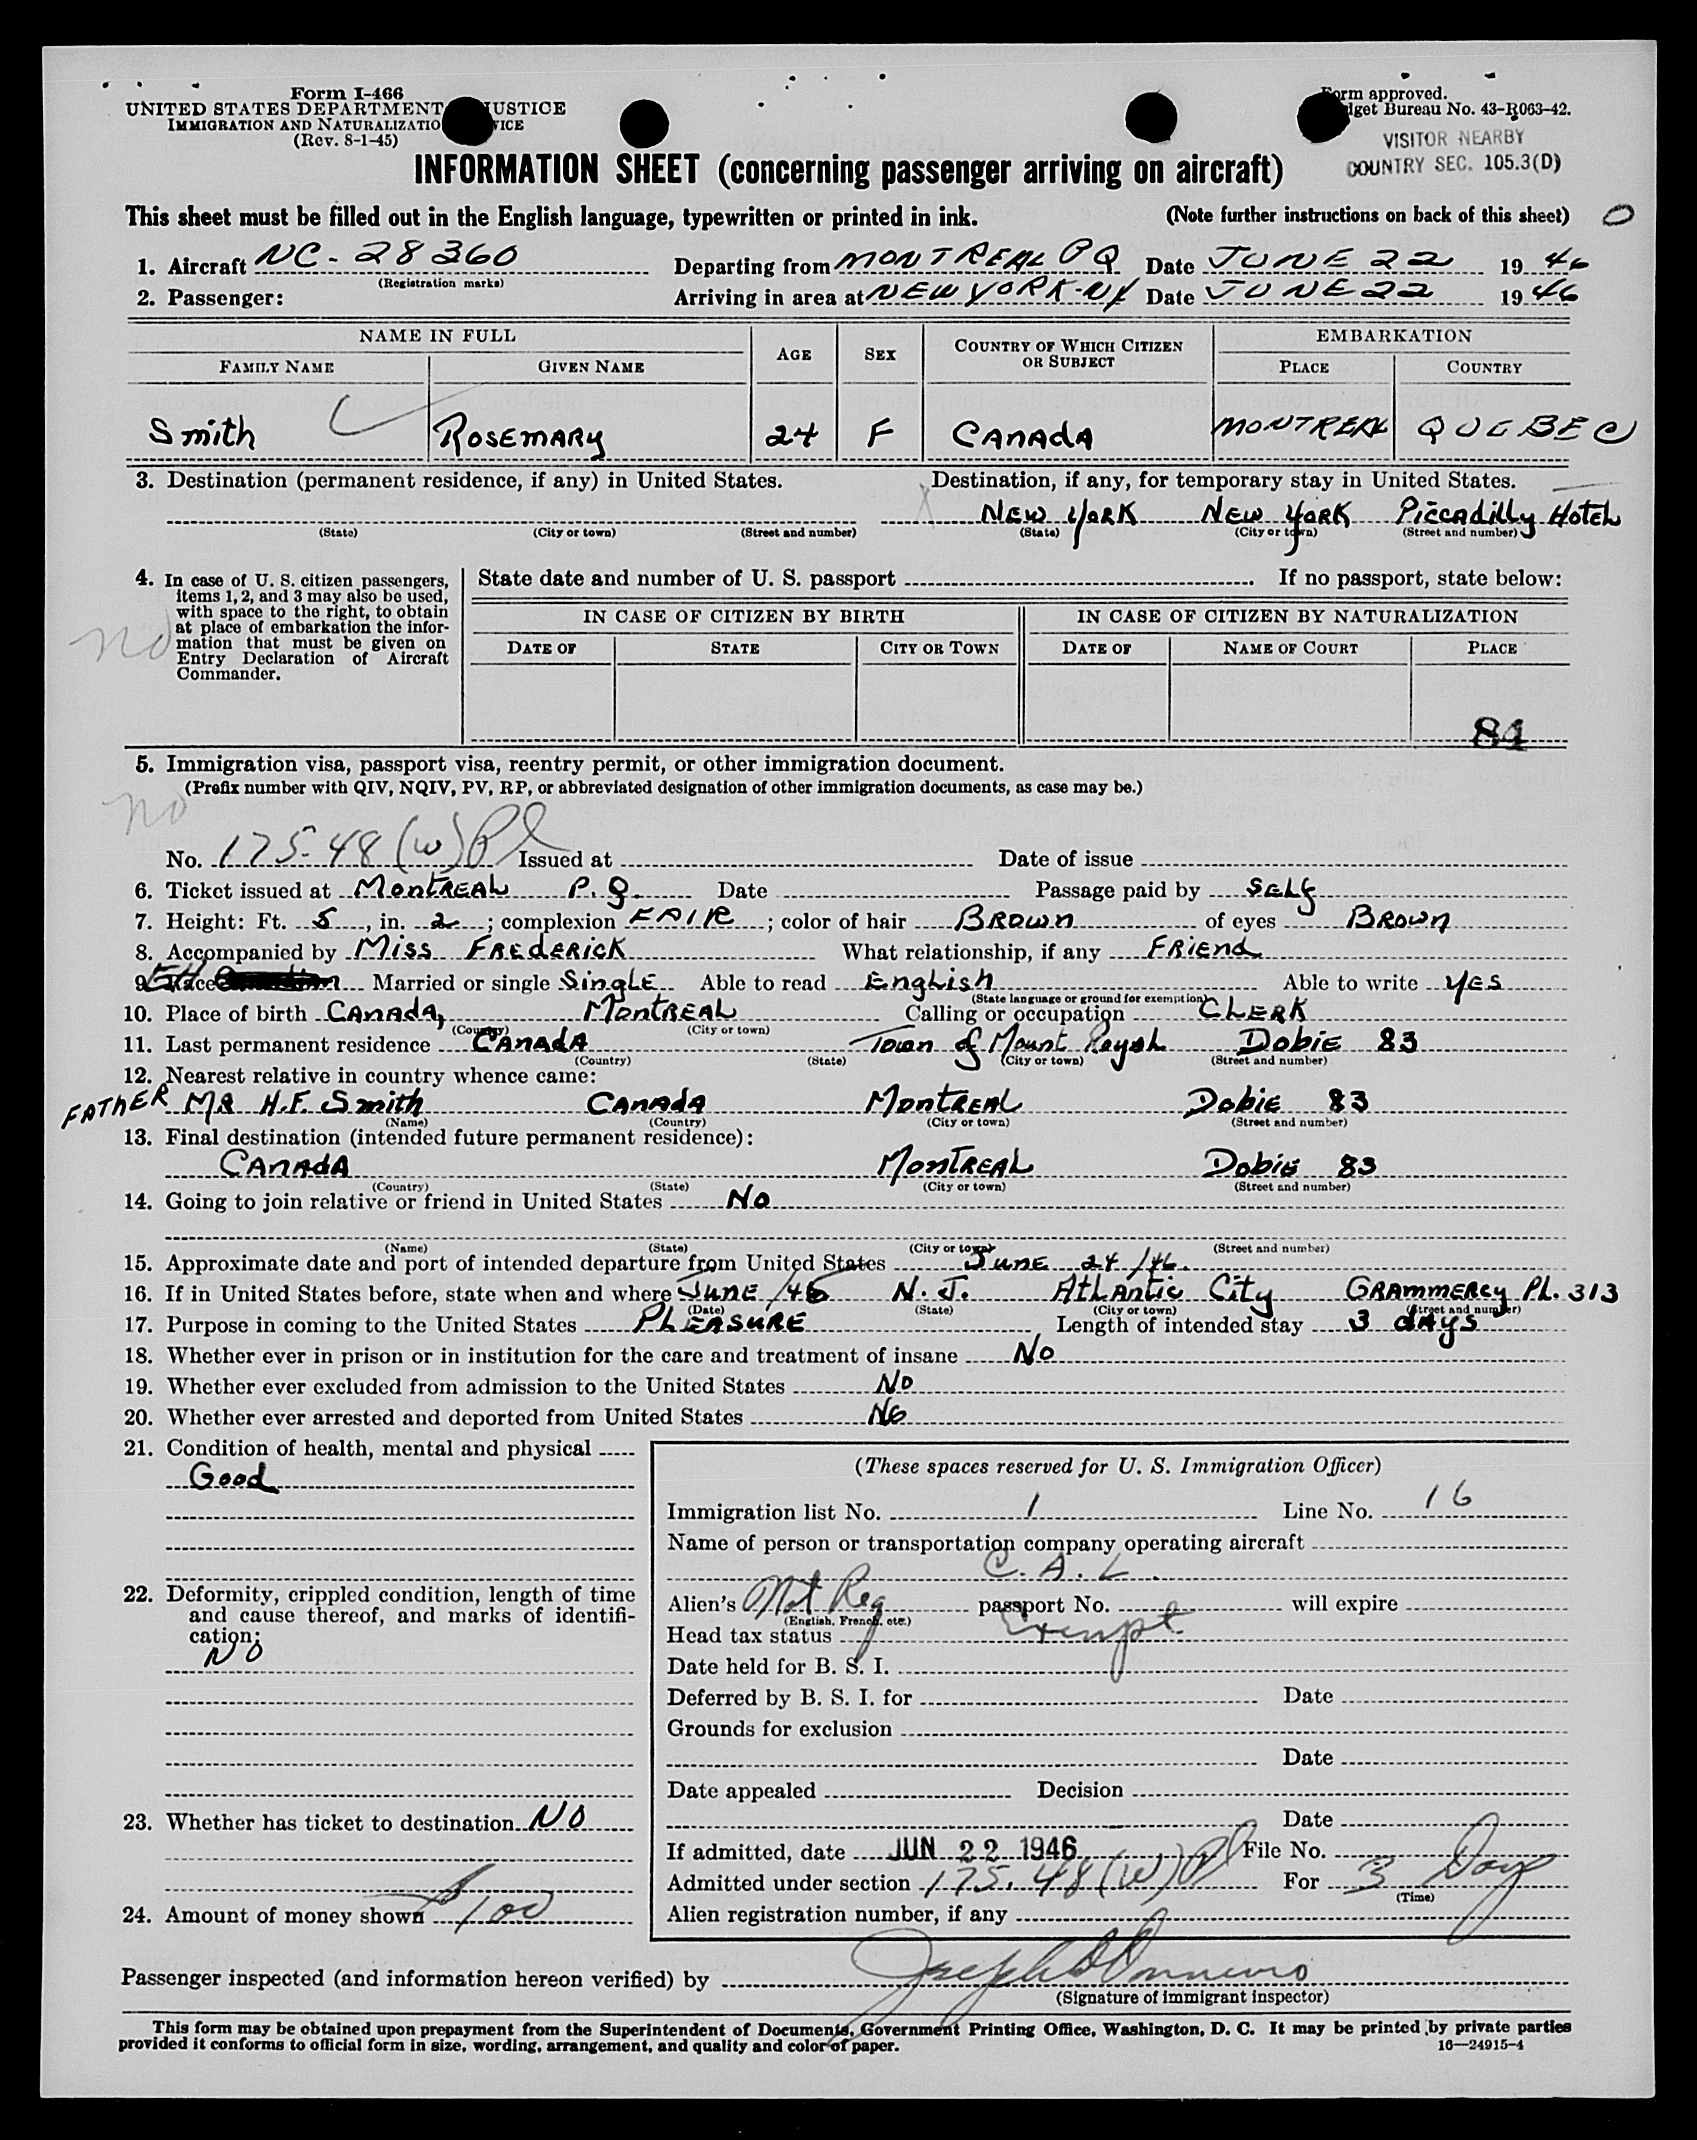 Form I-466
UNITED STATES DEPARTMENT JUSTICE
IMMIGRATION AND NATURALIZATIO VICE
(Rev. 8-1-45)
Form approved.
dget Bureau No. 43-R063-42.
VISITOR NEARBY
COUNTRY SEC. 105.3(D)
INFORMATION SHEET (concerning passenger arriving on aircraft)
This sheet must be filled out in the English language, typewritten or printed in ink. (Note further instructions on back of this sheet) O
1. Aircraft NC-28360 Departing from MONTREAL PQ Date JUNE 22 1946
(Registration marks)
2. Passenger: Arriving in area at NEW YORK-NY Date JUNE 22 1946
NAME IN FULL AGE SEX COUNTRY OF WHICH CITIZEN OR SUBJECT EMBARKATION
FAMILY NAME GIVEN NAME PLACE COUNTRY
Smith ROSEMARY 24 F CANADA MONTREAL QUEBEC
3. Destination (permanent residence, if any) in United States. Destination, if any, for temporary stay in United States.
NEW YORK NEW YORK Piccadilly HOTEL
(State) (City or town) (Street and number) (State) (City or town) (Street and number)
4. In case of U. S. citizen passengers, items 1, 2, and 3 may also be used, with space to the right, to obtain at place of embarkation the information that must be given on Entry Declaration of Aircraft Commander.
no
State date and number of U. S. passport If no passport, state below:
IN CASE OF CITIZEN BY BIRTH IN CASE OF CITIZEN BY NATURALIZATION
DATE OF STATE CITY OR TOWN DATE OF NAME OF COURT PLACE
84
5. Immigration visa, passport visa, reentry permit, or other immigration document.
(Prefix number with QIV, NQIV, PV, RP, or abbreviated designation of other immigration documents, as case may be.)
no
No. 175.48 (w) Pl Issued at Date of issue
6. Ticket issued at MONTREAL P.Q. Date Passage paid by SELF
7. Height: Ft. 5, in. 2; complexion FAIR; color of hair BROWN of eyes BROWN
8. Accompanied by Miss FREDERICK What relationship, if any FRIEND
9. Race Married or single SINGLE Able to read ENGLISH Able to write YES
(State language or ground for exemption)
10. Place of birth CANADA, MONTREAL Calling or occupation CLERK
(Country) (City or town)
11. Last permanent residence CANADA Town of Mount Royal Dobie 83
(Country) (State) (City or town) (Street and number)
12. Nearest relative in country whence came:
FATHER MR H.F. Smith CANADA MONTREAL Dobie 83
(Name) (Country) (City or town) (Street and number)
13. Final destination (intended future permanent residence):
CANADA MONTREAL Dobie 83
(Country) (State) (City or town) (Street and number)
14. Going to join relative or friend in United States No
(Name) (State) (City or town) (Street and number)
15. Approximate date and port of intended departure from United States JUNE 24/46.
16. If in United States before, state when and where JUNE/45 N.J. Atlantic City GRAMMERCY PL. 313
(Date) (State) (City or town) (Street and number)
17. Purpose in coming to the United States PLEASURE Length of intended stay 3 days
18. Whether ever in prison or in institution for the care and treatment of insane No
19. Whether ever excluded from admission to the United States No
20. Whether ever arrested and deported from United States No
21. Condition of health, mental and physical
Good
22. Deformity, crippled condition, length of time and cause thereof, and marks of identification:
NO
23. Whether has ticket to destination NO
24. Amount of money shown $100
(These spaces reserved for U. S. Immigration Officer)
Immigration list No. 1 Line No. 16
Name of person or transportation company operating aircraft
C. A. L.
Alien's Not Reg passport No. will expire
(English, French, etc.)
Head tax status Exempt
Date held for B. S. I.
Deferred by B. S. I. for Date
Grounds for exclusion
Date
Date appealed Decision
Date
If admitted, date JUN 22 1946 File No.
Admitted under section 175.48 (w) Pl For 3 Days
(Time)
Alien registration number, if any
Passenger inspected (and information hereon verified) by
(Signature of immigrant inspector)
This form may be obtained upon prepayment from the Superintendent of Documents, Government Printing Office, Washington, D. C. It may be printed by private parties
provided it conforms to official form in size, wording, arrangement, and quality and color of paper. 16—24915-4